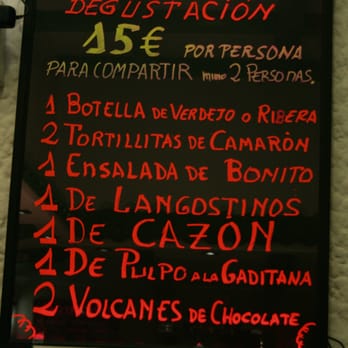 DEGUSTACIÓN
15€ POR PERSONA
PARA COMPARTIR MINIMO 2 PERSONAS.
1 BOTELLA DE VERDEJO O RIBERA
2 TORTILLITAS DE CAMARÒN
1 ENSALADA DE BONITO
1 DE LANGOSTINOS
1 DE CAZON
1 DE PULPO A LA GADITANA
2 VOLCANES DE CHOCOLATE